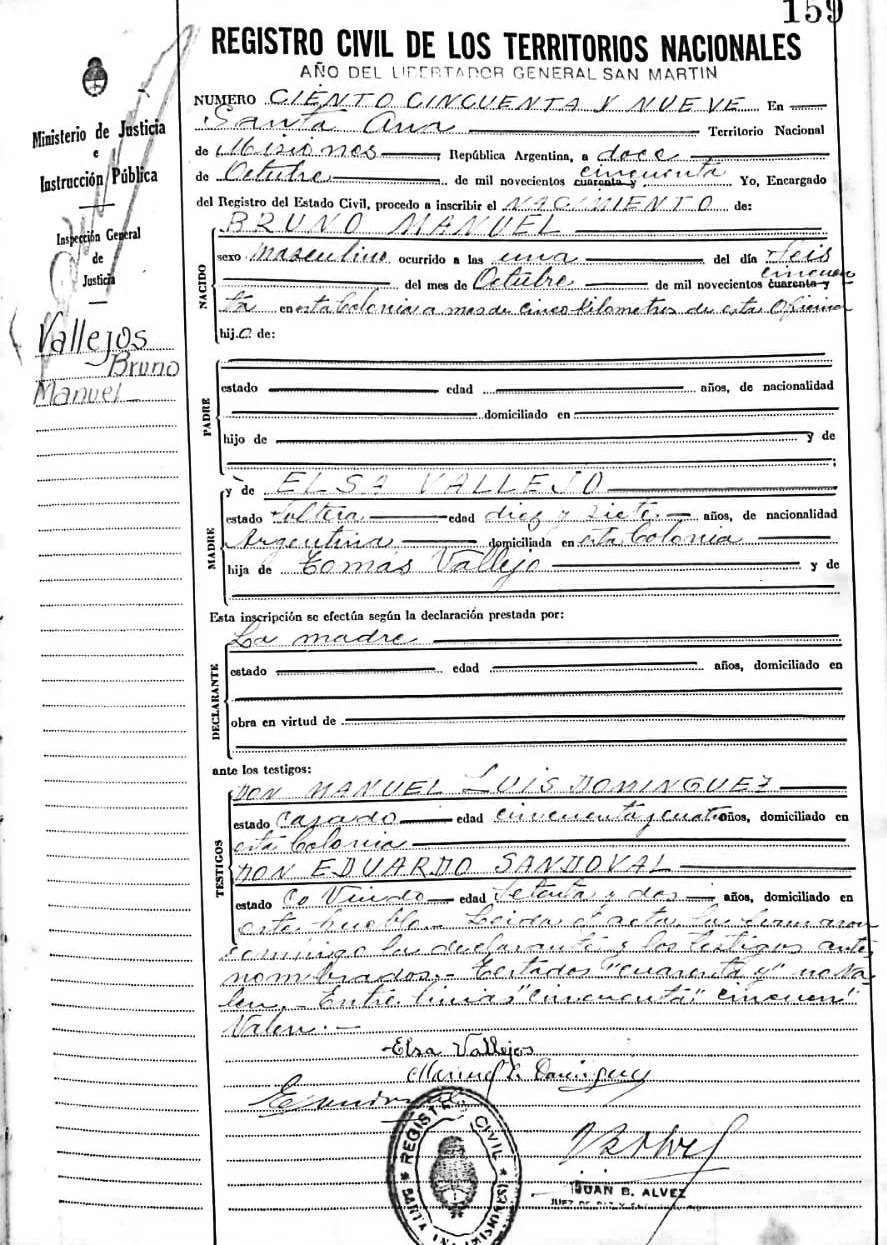 159
REGISTRO CIVIL DE LOS TERRITORIOS NACIONALES
AÑO DEL LIBERTADOR GENERAL SAN MARTIN
Ministerio de Justicia
e
Instrucción Pública
Inspección General
de
Justicia
Vallejos
Bruno
Manuel
NUMERO CIENTO CINCUENTA Y NUEVE En
Santa Ana Territorio Nacional
de Misiones, República Argentina, a doce
de Octubre de mil novecientos cuarenta y cincuenta Yo, Encargado
del Registro del Estado Civil, procedo a inscribir el NACIMIENTO de:
NACIDO
BRUNO MANUEL
sexo Masculino ocurrido a las una del día Seis
del mes de Octubre de mil novecientos cuarenta y cincuen
ta en esta Colonia a mas de cinco kilometros de esta Oficina
hijo de:
PADRE
estado edad años, de nacionalidad
domiciliado en
hijo de y de
;
MADRE
y de ELSA VALLEJO
estado Soltera edad diez y siete años, de nacionalidad
Argentina domiciliada en esta Colonia
hija de Tomás Vallejo y de
Esta inscripción se efectúa según la declaración prestada por:
DECLARANTE
La madre
estado edad años, domiciliado en
obra en virtud de
ante los testigos:
TESTIGOS
DON MANUEL LUIS DOMINGUEZ
estado Casado edad cincuenta y cuatro años, domiciliado en
esta Colonia
DON EDUARDO SANDOVAL
estado Viudo edad Setenta y dos años, domiciliado en
este pueblo.- Leida el acta, la firmaron
conmigo la declarante y los testigos ante
nombrados.- Testados "cuarenta y" no va-
len.- Entre lineas "cincuenta" "cincuen"
Valen.-
Elsa Vallejos
Manuel L. Dominguez
REGISTRO CIVIL
SANTA ANA (MISIONES)
JUAN B. ALVEZ
JUEZ DE PAZ Y